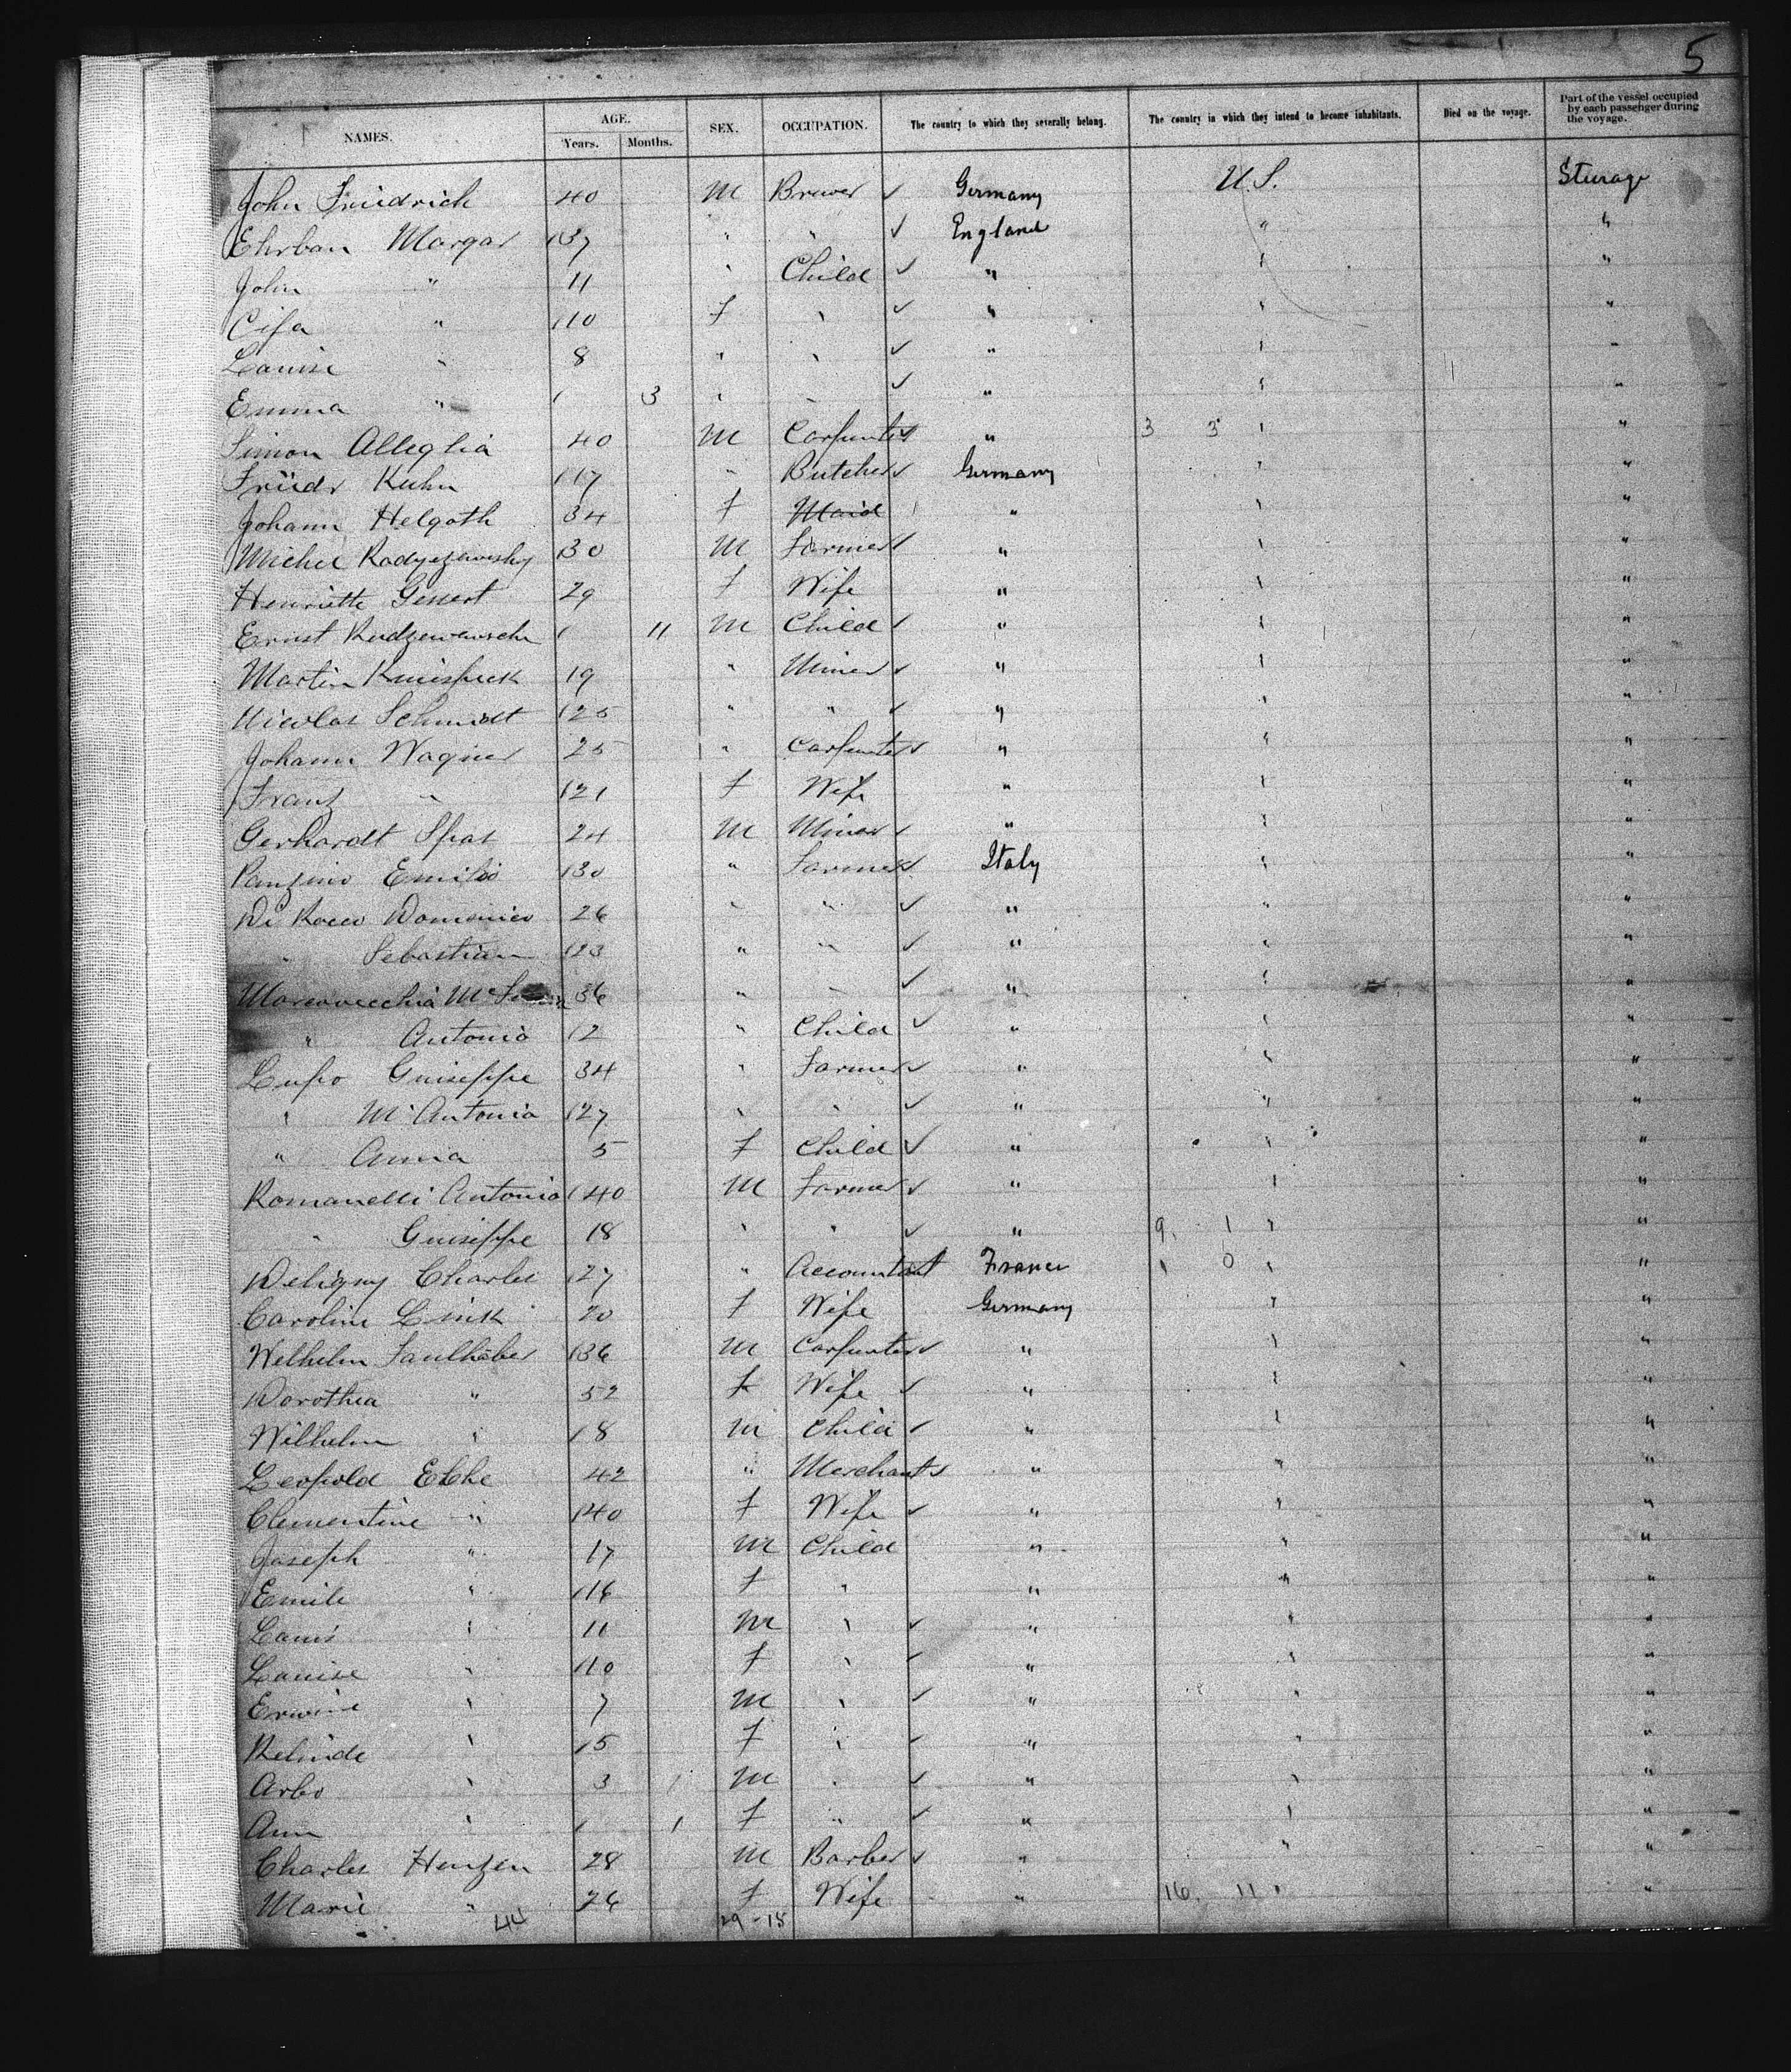 5
NAMES. AGE. Years. Months. SEX. OCCUPATION. The country to which they severally belong. The country in which they intend to become inhabitants. Died on the voyage. Part of the vessel occupied by each passenger during the voyage.
John Friedrich 40 M Brewer ✓ Germany U.S. Sturage
Ehrban Margar 37 " " ✓ England " "
John " 11 " Child ✓ " " "
Cifa " 10 f " ✓ " " "
Louise " 8 " " ✓ " " "
Emma " 3 " " ✓ " " "
Simon Alleglia 40 M Carpenter ✓ " 3 3 " "
Friedr Kuhn 17 " Butcher ✓ Germany " "
Johann Helgoth 34 f Maid " " "
Michel Radyezewsky 30 M Farmer ✓ " " "
Henriette Gessert 29 f Wife " " "
Ernst 11 M Child ✓ " " "
Martin 19 " Miner ✓ " " "
Nicolas Schmidt 25 " " ✓ " " "
Johann Wagner 25 " Carpenter ✓ " " "
Franz " 21 f Wife " " "
Gerhardt Spat 24 M Miner ✓ " " "
Panzino Emilio 30 " Farmer ✓ Italy " "
Di Rocco Domenico 26 " " ✓ " " "
" Sebastian 23 " " ✓ " " "
Marcovecchia Mc 36 " " ✓ " " "
" Antonio 12 " Child ✓ " " "
Lupo Guiseppe 34 " Farmer ✓ " " "
" M Antonia 27 " " ✓ " " "
" Anna 5 f Child ✓ " " "
Romanelli Antonio 40 M Farmer ✓ " " "
" Guiseppe 18 " " ✓ " 9. 1 " "
Deligny Charles 27 " Accountant France 1 0 " "
Caroline Link 20 f Wife Germany " "
Welhelm Faulhaber 36 M Carpenter ✓ " " "
Dorothea " 52 f Wife ✓ " " "
Wilhelm " 8 M Child ✓ " " "
Leopold Ebhe 42 " Merchant ✓ " " "
Clementine " 40 f Wife ✓ " " "
Joseph " 17 M Child " " "
Emile " 16 f " " " "
Louis " 11 M " ✓ " " "
Louise " 10 f " ✓ " " "
Erwine " 7 M " ✓ " " "
Relinde " 5 f " ✓ " " "
Arbo " 3 M " ✓ " " "
Ann " 1 f " ✓ " " "
Charles Henzen 28 M Barber ✓ " " "
Marie " 26 f Wife " 16. 11 " "
44 29-15